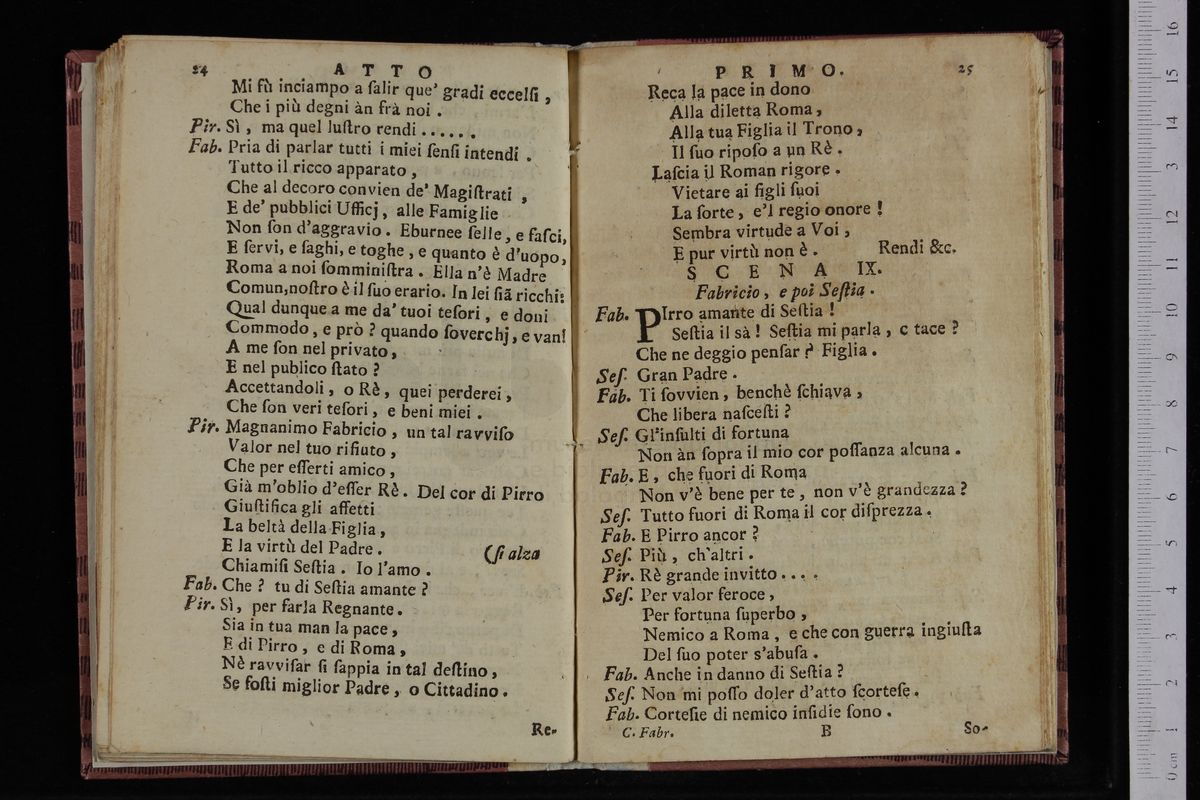 24 ATTO
Mi fù inciampo a ſalir que' gradi eccelſi ,
Che i più degni àn frà noi .
Pir. Sì , ma quel luſtro rendi ......
Fab. Pria di parlar tutti i miei ſenſi intendi .
Tutto il ricco apparato ,
Che al decoro convien de' Magiſtrati ,
E de' pubblici Ufficj , alle Famiglie
Non ſon d'aggravio . Eburnee ſelle , e faſci,
E ſervi, e ſaghi, e toghe , e quanto è d'uopo,
Roma a noi ſomminiſtra . Ella n'è Madre
Comun,noſtro è il ſuo erario. In lei ſiã ricchi:
Qual dunque a me da' tuoi teſori , e doni
Commodo , e prò ? quando ſoverchj, e vani
A me ſon nel privato ,
E nel publico ſtato ?
Accettandoli , o Rè , quei perderei ,
Che ſon veri teſori , e beni miei .
Pir. Magnanimo Fabricio , un tal ravviſo
Valor nel tuo rifiuto ,
Che per eſſerti amico ,
Già m'oblio d'eſſer Rè . Del cor di Pirro
Giuſtifica gli affetti
La beltà della Figlia ,
E la virtù del Padre . (ſi alza
Chiamiſi Seſtia . Io l'amo .
Fab. Che ? tu di Seſtia amante ?
Pir. Sì, per farla Regnante .
Sia in tua man la pace ,
E di Pirro , e di Roma ,
Nè ravviſar ſi ſappia in tal deſtino ,
Se foſti miglior Padre , o Cittadino .
Re-
PRIMO. 25
Reca la pace in dono
Alla diletta Roma ,
Alla tua Figlia il Trono ,
Il ſuo ripoſo a un Rè .
Laſcia il Roman rigore .
Vietare ai figli ſuoi
La ſorte , e'l regio onore !
Sembra virtude a Voi ,
E pur virtù non è . Rendi &c.
SCENA IX.
Fabricio , e poi Seſtia .
Fab. PIrro amante di Seſtia !
Seſtia il sà ! Seſtia mi parla , e tace ?
Che ne deggio penſar ? Figlia .
Seſ. Gran Padre .
Fab. Ti ſovvien , benchè ſchiava ,
Che libera naſceſti ?
Seſ. Gl'inſulti di fortuna
Non àn ſopra il mio cor poſſanza alcuna .
Fab. E , che fuori di Roma
Non v'è bene per te , non v'è grandezza ?
Seſ. Tutto fuori di Roma il cor diſprezza .
Fab. E Pirro ancor ?
Seſ. Più , ch'altri .
Pir. Rè grande invitto ....
Seſ. Per valor feroce ,
Per fortuna ſuperbo ,
Nemico a Roma , e che con guerra ingiuſta
Del ſuo poter s'abuſa .
Fab. Anche in danno di Seſtia ?
Seſ. Non mi poſſo doler d'atto ſcorteſe .
Fab. Corteſie di nemico inſidie ſono .
C. Fabr. B So-
0 cm 1 2 3 4 5 6 7 8 9 10 11 12 13 14 15 16